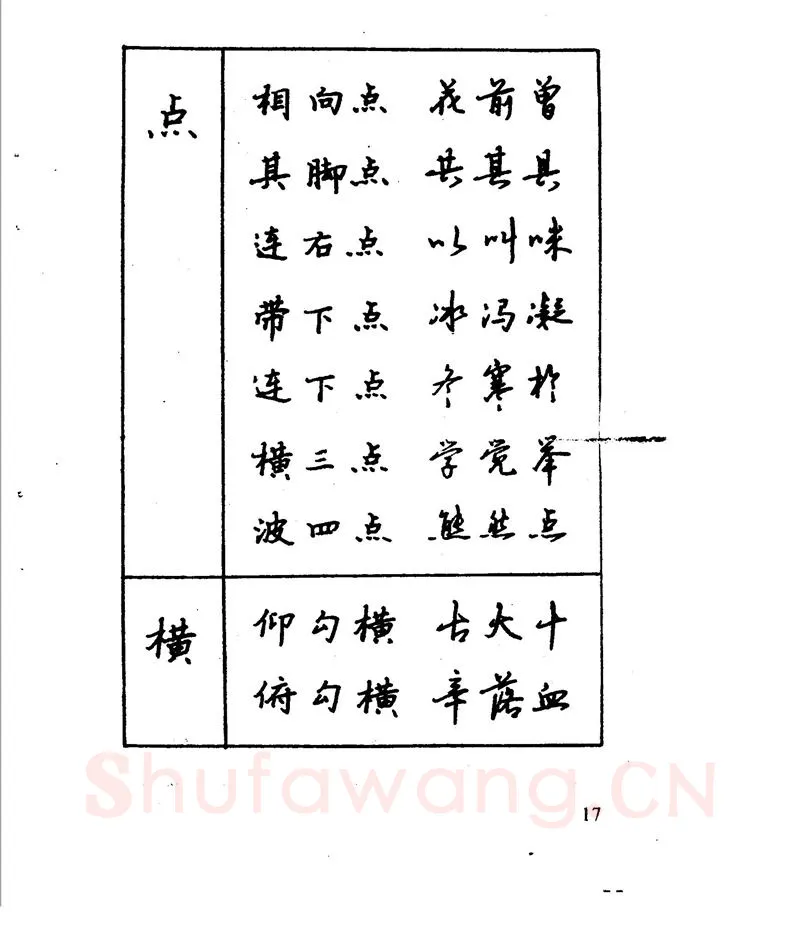 点
相向点 花前曾
其脚点 共其具
连右点 以叫咪
带下点 冰冯凝
连下点 冬寒於
横三点 学觉举
波四点 熊然点
横
仰勾横 古大十
俯勾横 辛落血
Shufawang.CN
17